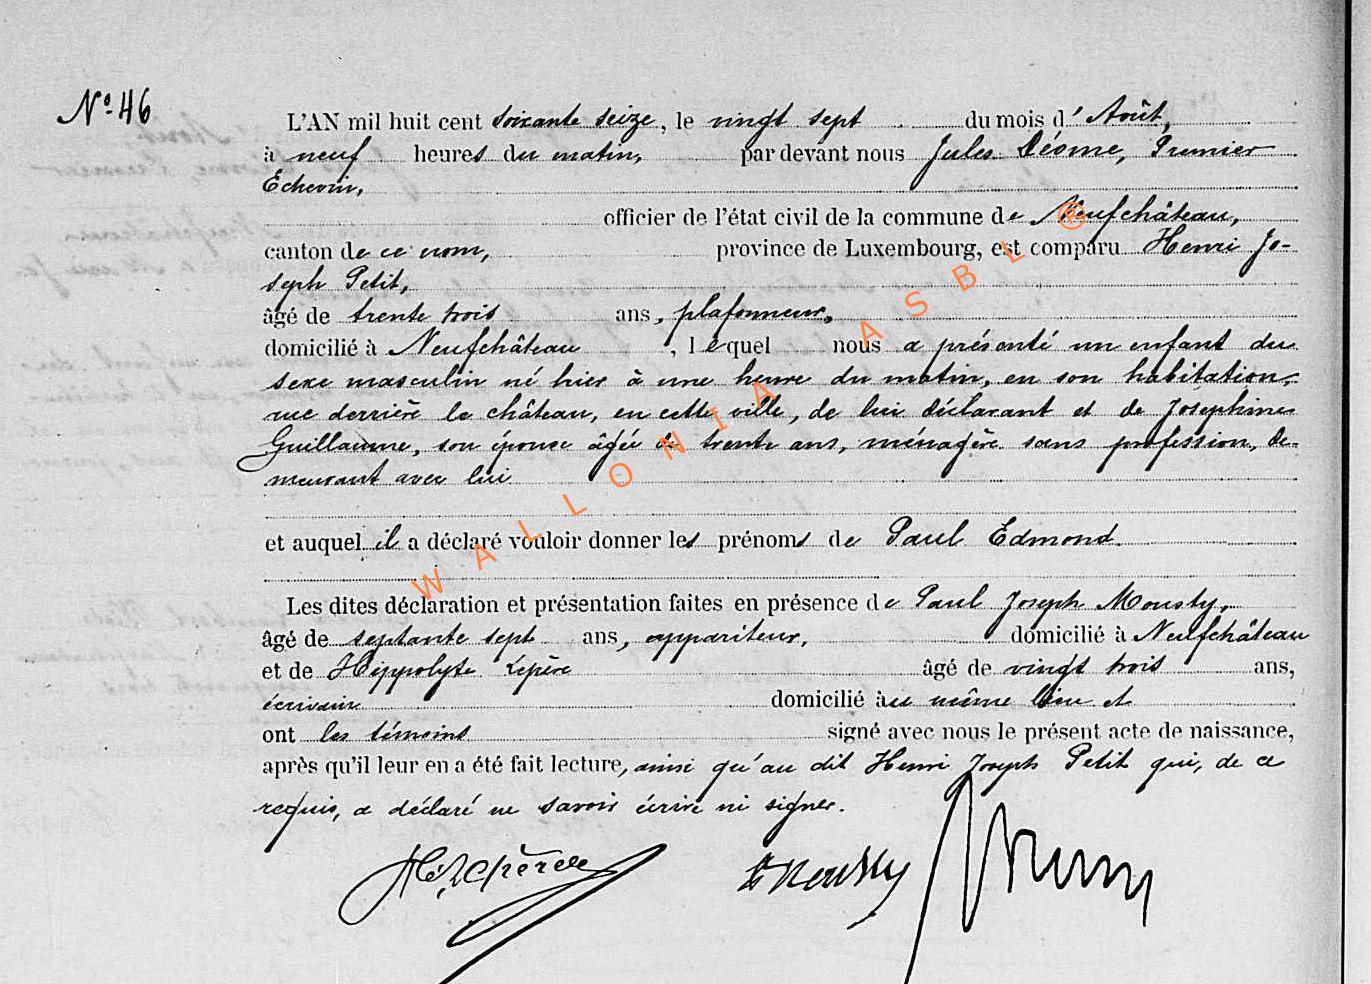 N° 46
L'AN mil huit cent soixante seize, le vingt sept du mois d'Août,
à neuf heures du matin, par devant nous Jules Déome, Premier
Echevin,
officier de l'état civil de la commune de Neufchâteau,
canton de ce nom, province de Luxembourg, est comparu Henri Jo-
seph Petit,
âgé de trente trois ans, plafonneur,
domicilié à Neufchâteau, lequel nous a présenté un enfant du
sexe masculin né hier à une heure du matin, en son habitation,
rue derrière le château, en cette ville, de lui déclarant et de Josephine
Guillaume, son épouse âgée de trente ans, ménagère sans profession, de-
meurant avec lui
et auquel il a déclaré vouloir donner les prénoms de Paul Edmond.
Les dites déclaration et présentation faites en présence de Paul Joseph Mousty,
âgé de septante sept ans, appariteur, domicilié à Neufchâteau
et de Hippolyte Lepère âgé de vingt trois ans,
écrivain domicilié au même lieu et
ont les témoins signé avec nous le présent acte de naissance,
après qu'il leur en a été fait lecture, ainsi qu'au dit Henri Joseph Petit qui, de ce
requis, a déclaré ne savoir écrire ni signer.
WALLONIA ASBL ®